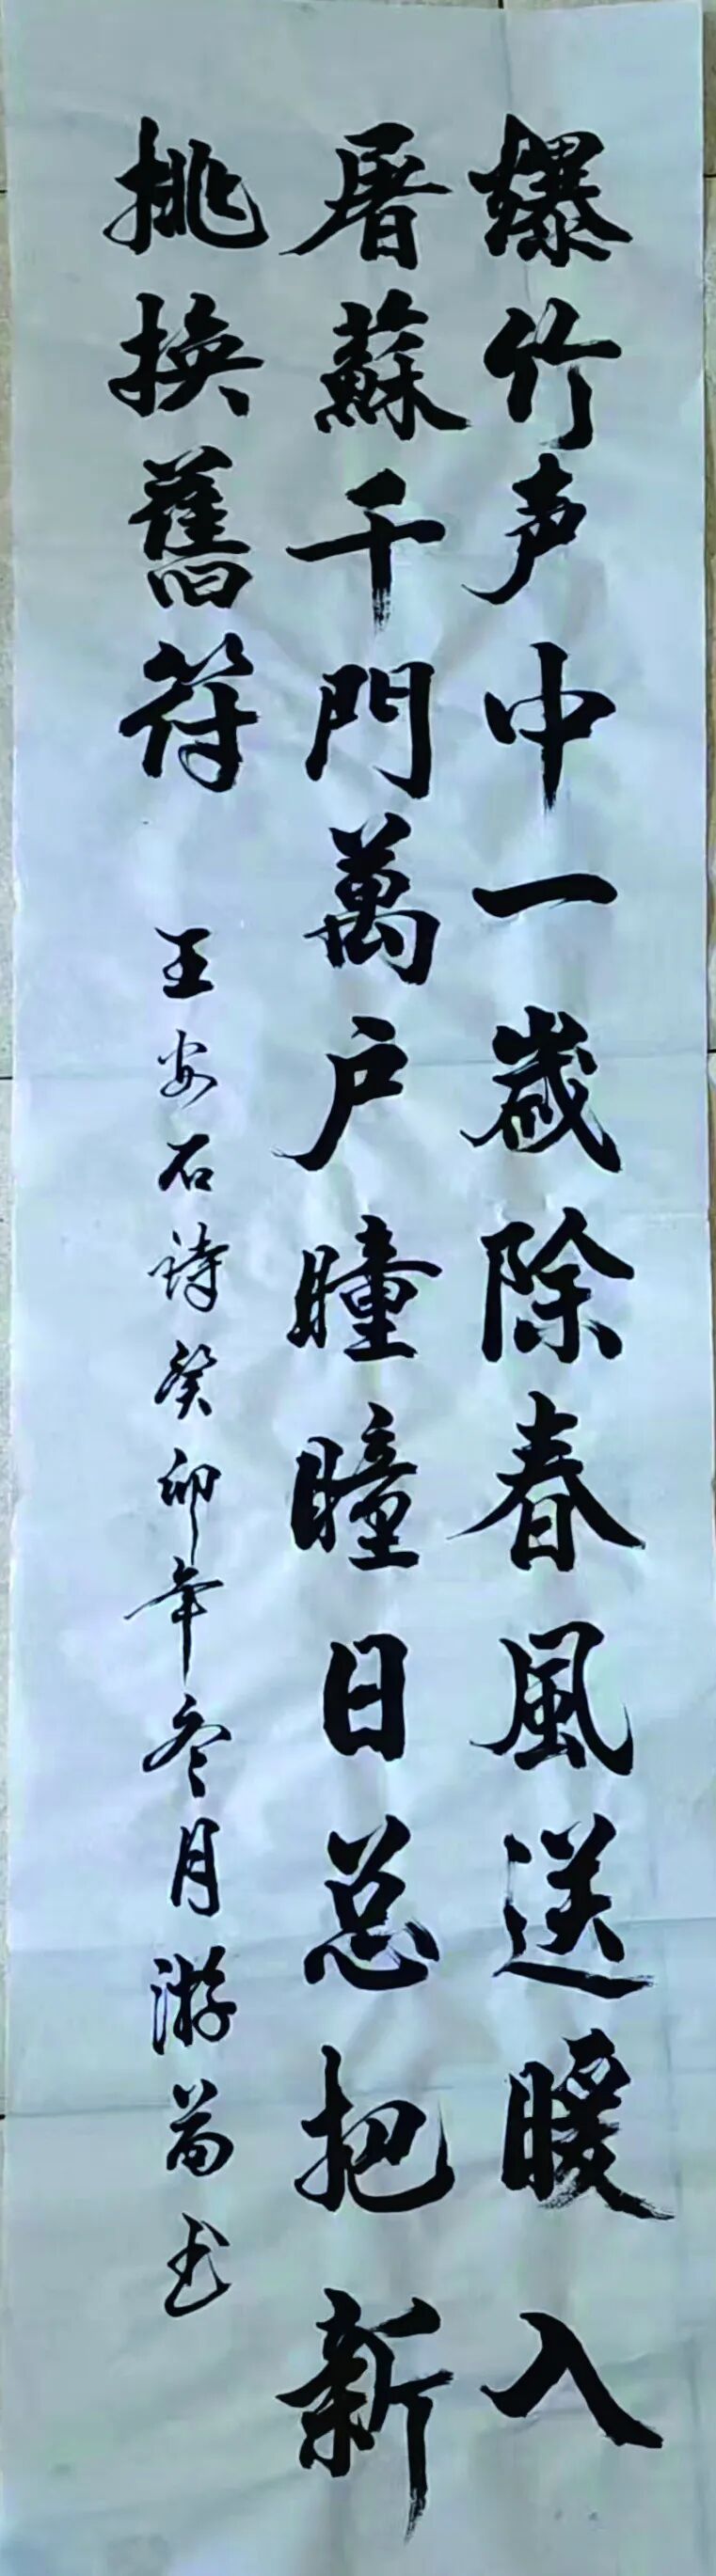 爆竹声中一歲除春風送暖入
屠蘇千門萬户瞳瞳日总把新
挑換舊符
王安石詩癸卯年冬月游苗书